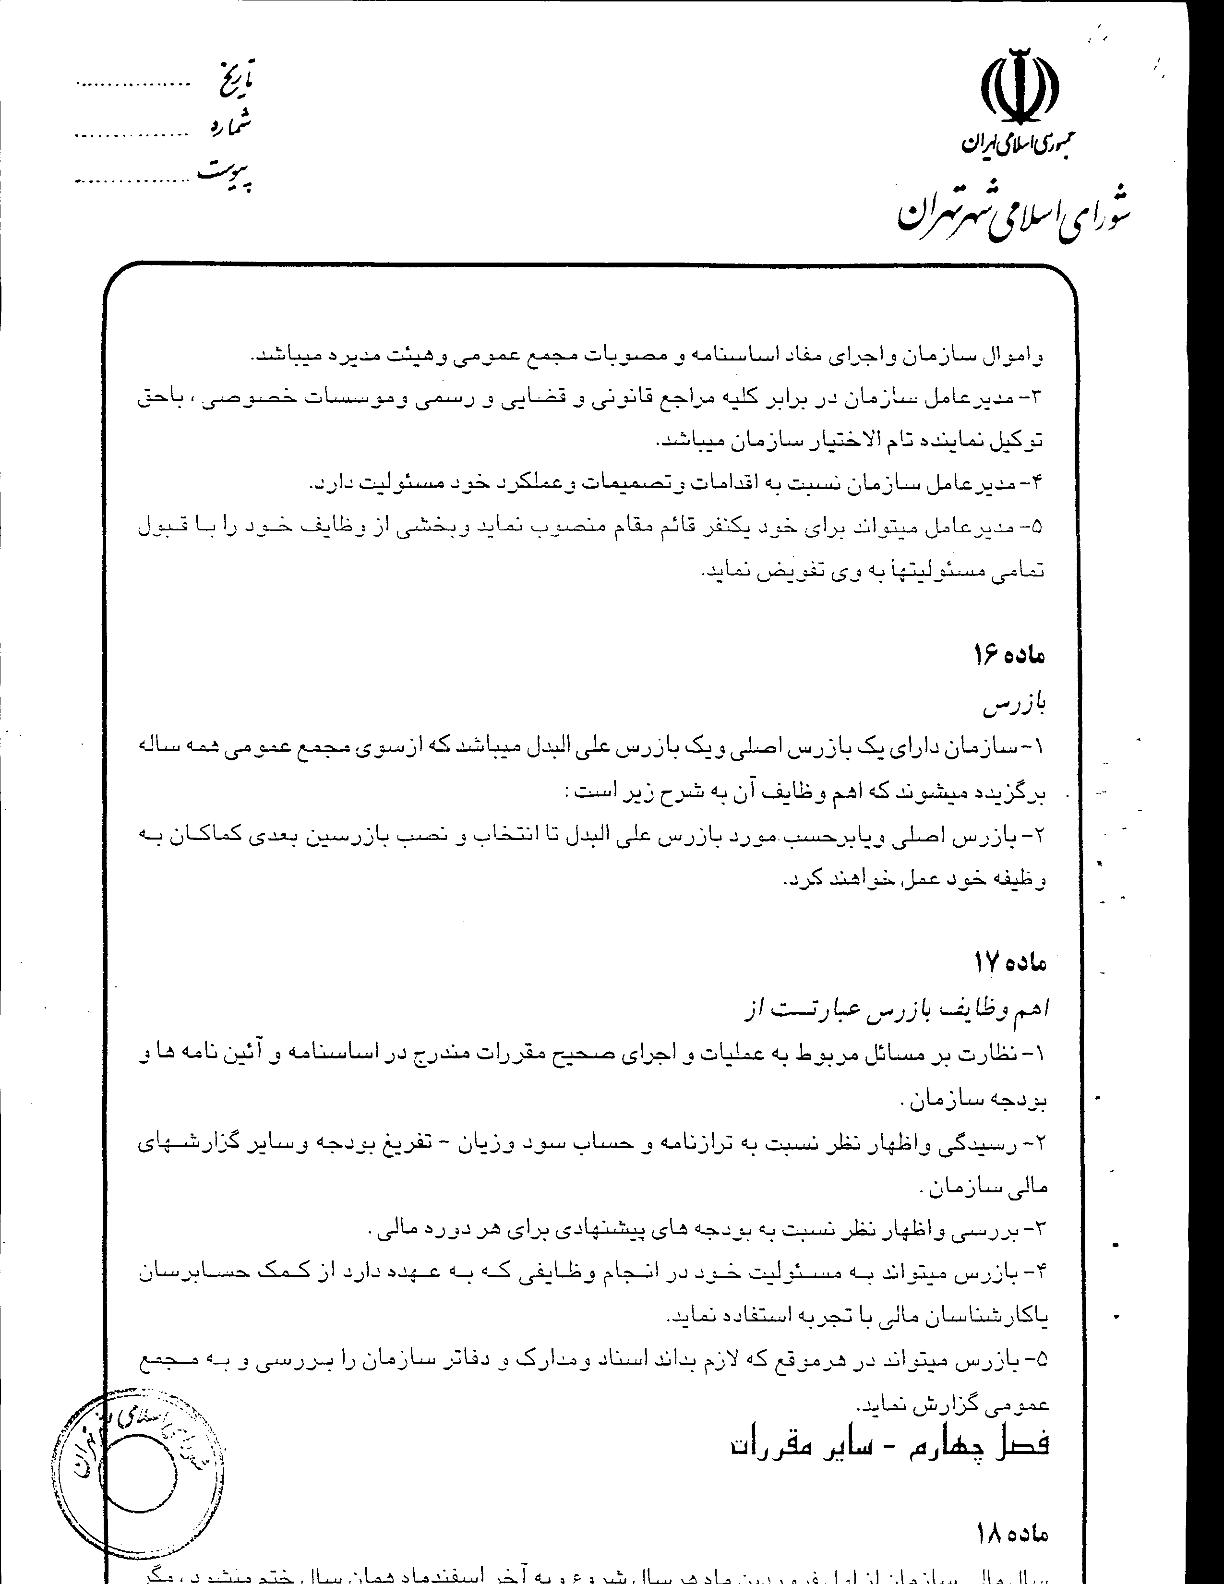 جمهوری اسلامی ایران
شورای اسلامی شهر تهران
تاریخ ..................
شماره ..................
پیوست ..................
واموال سازمان واجرای مفاد اساسنامه و مصوبات مجمع عمومی وهیئت مدیره میباشد.
۳- مدیرعامل سازمان در برابر کلیه مراجع قانونی و قضایی و رسمی وموسسات خصوصی ، باحق
توکیل نماینده تام الاختیار سازمان میباشد.
۴- مدیرعامل سازمان نسبت به اقدامات وتصمیمات وعملکرد خود مسئولیت دارد.
۵- مدیرعامل میتواند برای خود یکنفر قائم مقام منصوب نماید وبخشی از وظایف خود را با قبول
تمامی مسئولیتها به وی تفویض نماید.
ماده ۱۶
بازرس
۱- سازمان دارای یک بازرس اصلی ویک بازرس علی البدل میباشد که ازسوی مجمع عمومی همه ساله
برگزیده میشوند که اهم وظایف آن به شرح زیر است :
۲- بازرس اصلی ویابرحسب مورد بازرس علی البدل تا انتخاب و نصب بازرسین بعدی کماکان به
وظیفه خود عمل خواهند کرد.
ماده ۱۷
اهم وظایف بازرس عبارتست از
۱- نظارت بر مسائل مربوط به عملیات و اجرای صحیح مقررات مندرج در اساسنامه و آئین نامه ها و
بودجه سازمان .
۲- رسیدگی واظهار نظر نسبت به ترازنامه و حساب سود وزیان - تفریغ بودجه وسایر گزارشهای
مالی سازمان .
۳- بررسی واظهار نظر نسبت به بودجه های پیشنهادی برای هر دوره مالی .
۴- بازرس میتواند به مسئولیت خود در انجام وظایفی که به عهده دارد از کمک حسابرسان
یاکارشناسان مالی با تجربه استفاده نماید.
۵- بازرس میتواند در هرموقع که لازم بداند اسناد ومدارک و دفاتر سازمان را بررسی و به مجمع
عمومی گزارش نماید.
فصل چهارم - سایر مقررات
شورای اسلامی شهر تهران
ماده ۱۸
سال مالی سازمان از اول فروردین ماه هر سال شروع و به آخر اسفندماه همان سال ختم میشود ، مگر